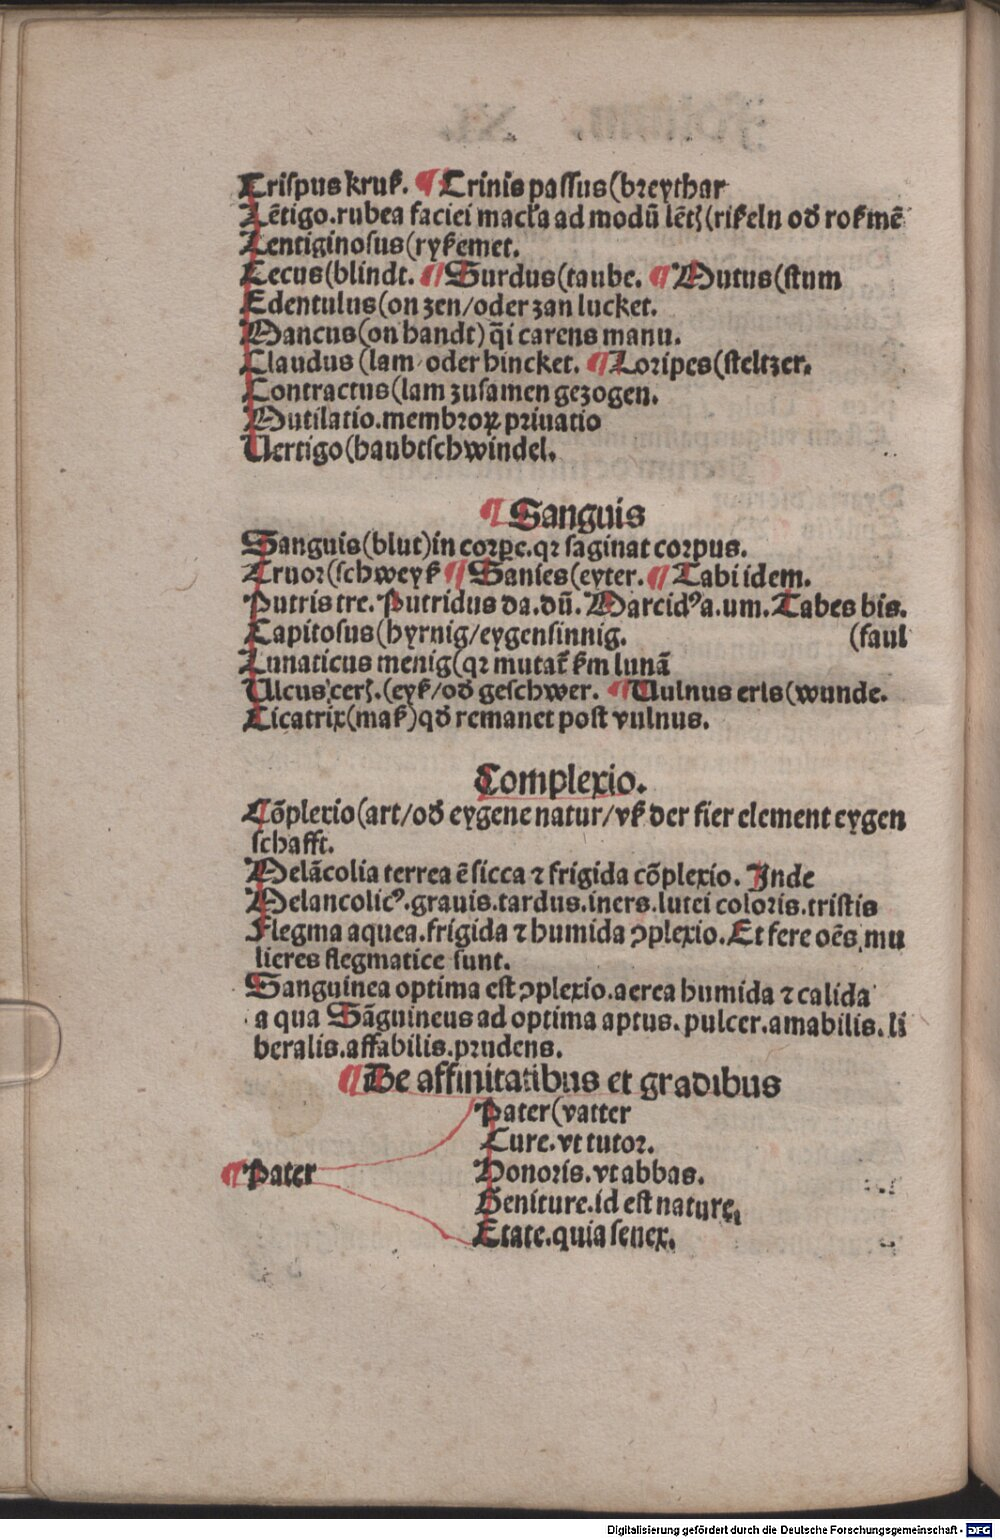 Crispus kruß. ¶ Crinis passus (breythar
Lētigo. rubea faciei macl'a ad modū lētꝫ (rißeln oð roßmē
Lentiginosus (ryßemet.
Cecus (blindt. ¶ Surdus (taube. ¶ Mutus (stum
Edentulus (on zen / oder zan lucket.
Mancus (on handt) q̄i carens manu.
Claudus (lam oder hincket. ¶ Loripes (steltzer.
Contractus (lam zusamen gezogen.
Mutilatio. membroꝝ priuatio
Uertigo (haubtschwindel.
¶ Sanguis
Sanguis (blut) in corꝑe. qꝛ saginat corpus.
Cruor (schweyß ¶ Sanies (eyter. ¶ Tabi idem.
Putris tre. Putridus da. dū. Marcidꝰ a. um. Tabes bis.
Capitosus (hyrnig / eygensinnig. (faul
Lunaticus menig (qꝛ mutat̄ ẜm lunā
Ulcus cerꝫ. (eyß / oð geschwer. ¶ Uulnus eris (wunde.
Cicatrix (maß) qð remanet post vulnus.
Complexio.
Cōplexio (art / oð eygene natur / vß der fier element eygen
schafft.
Melācolia terrea ē sicca ⁊ frigida cōplexio. Inde
Melancolicꝰ. grauis. tardus. iners. lutei coloris. tristis
Flegma aquea. frigida ⁊ humida ꝯplexio. Et fere oēs mu
lieres flegmatice sunt.
Sanguinea optima est ꝯplexio. aerea humida ⁊ calida
a qua Sāguineus ad optima aptus. pulcer. amabilis. li
beralis. affabilis. prudens.
¶ De affinitatibus et gradibus
¶ Pater
Pater (vatter
Cure. vt tutor.
Honoris. vt abbas.
Geniture. id est nature.
Etate. quia senex.
Digitalisierung gefördert durch die Deutsche Forschungsgemeinschaft - DFG